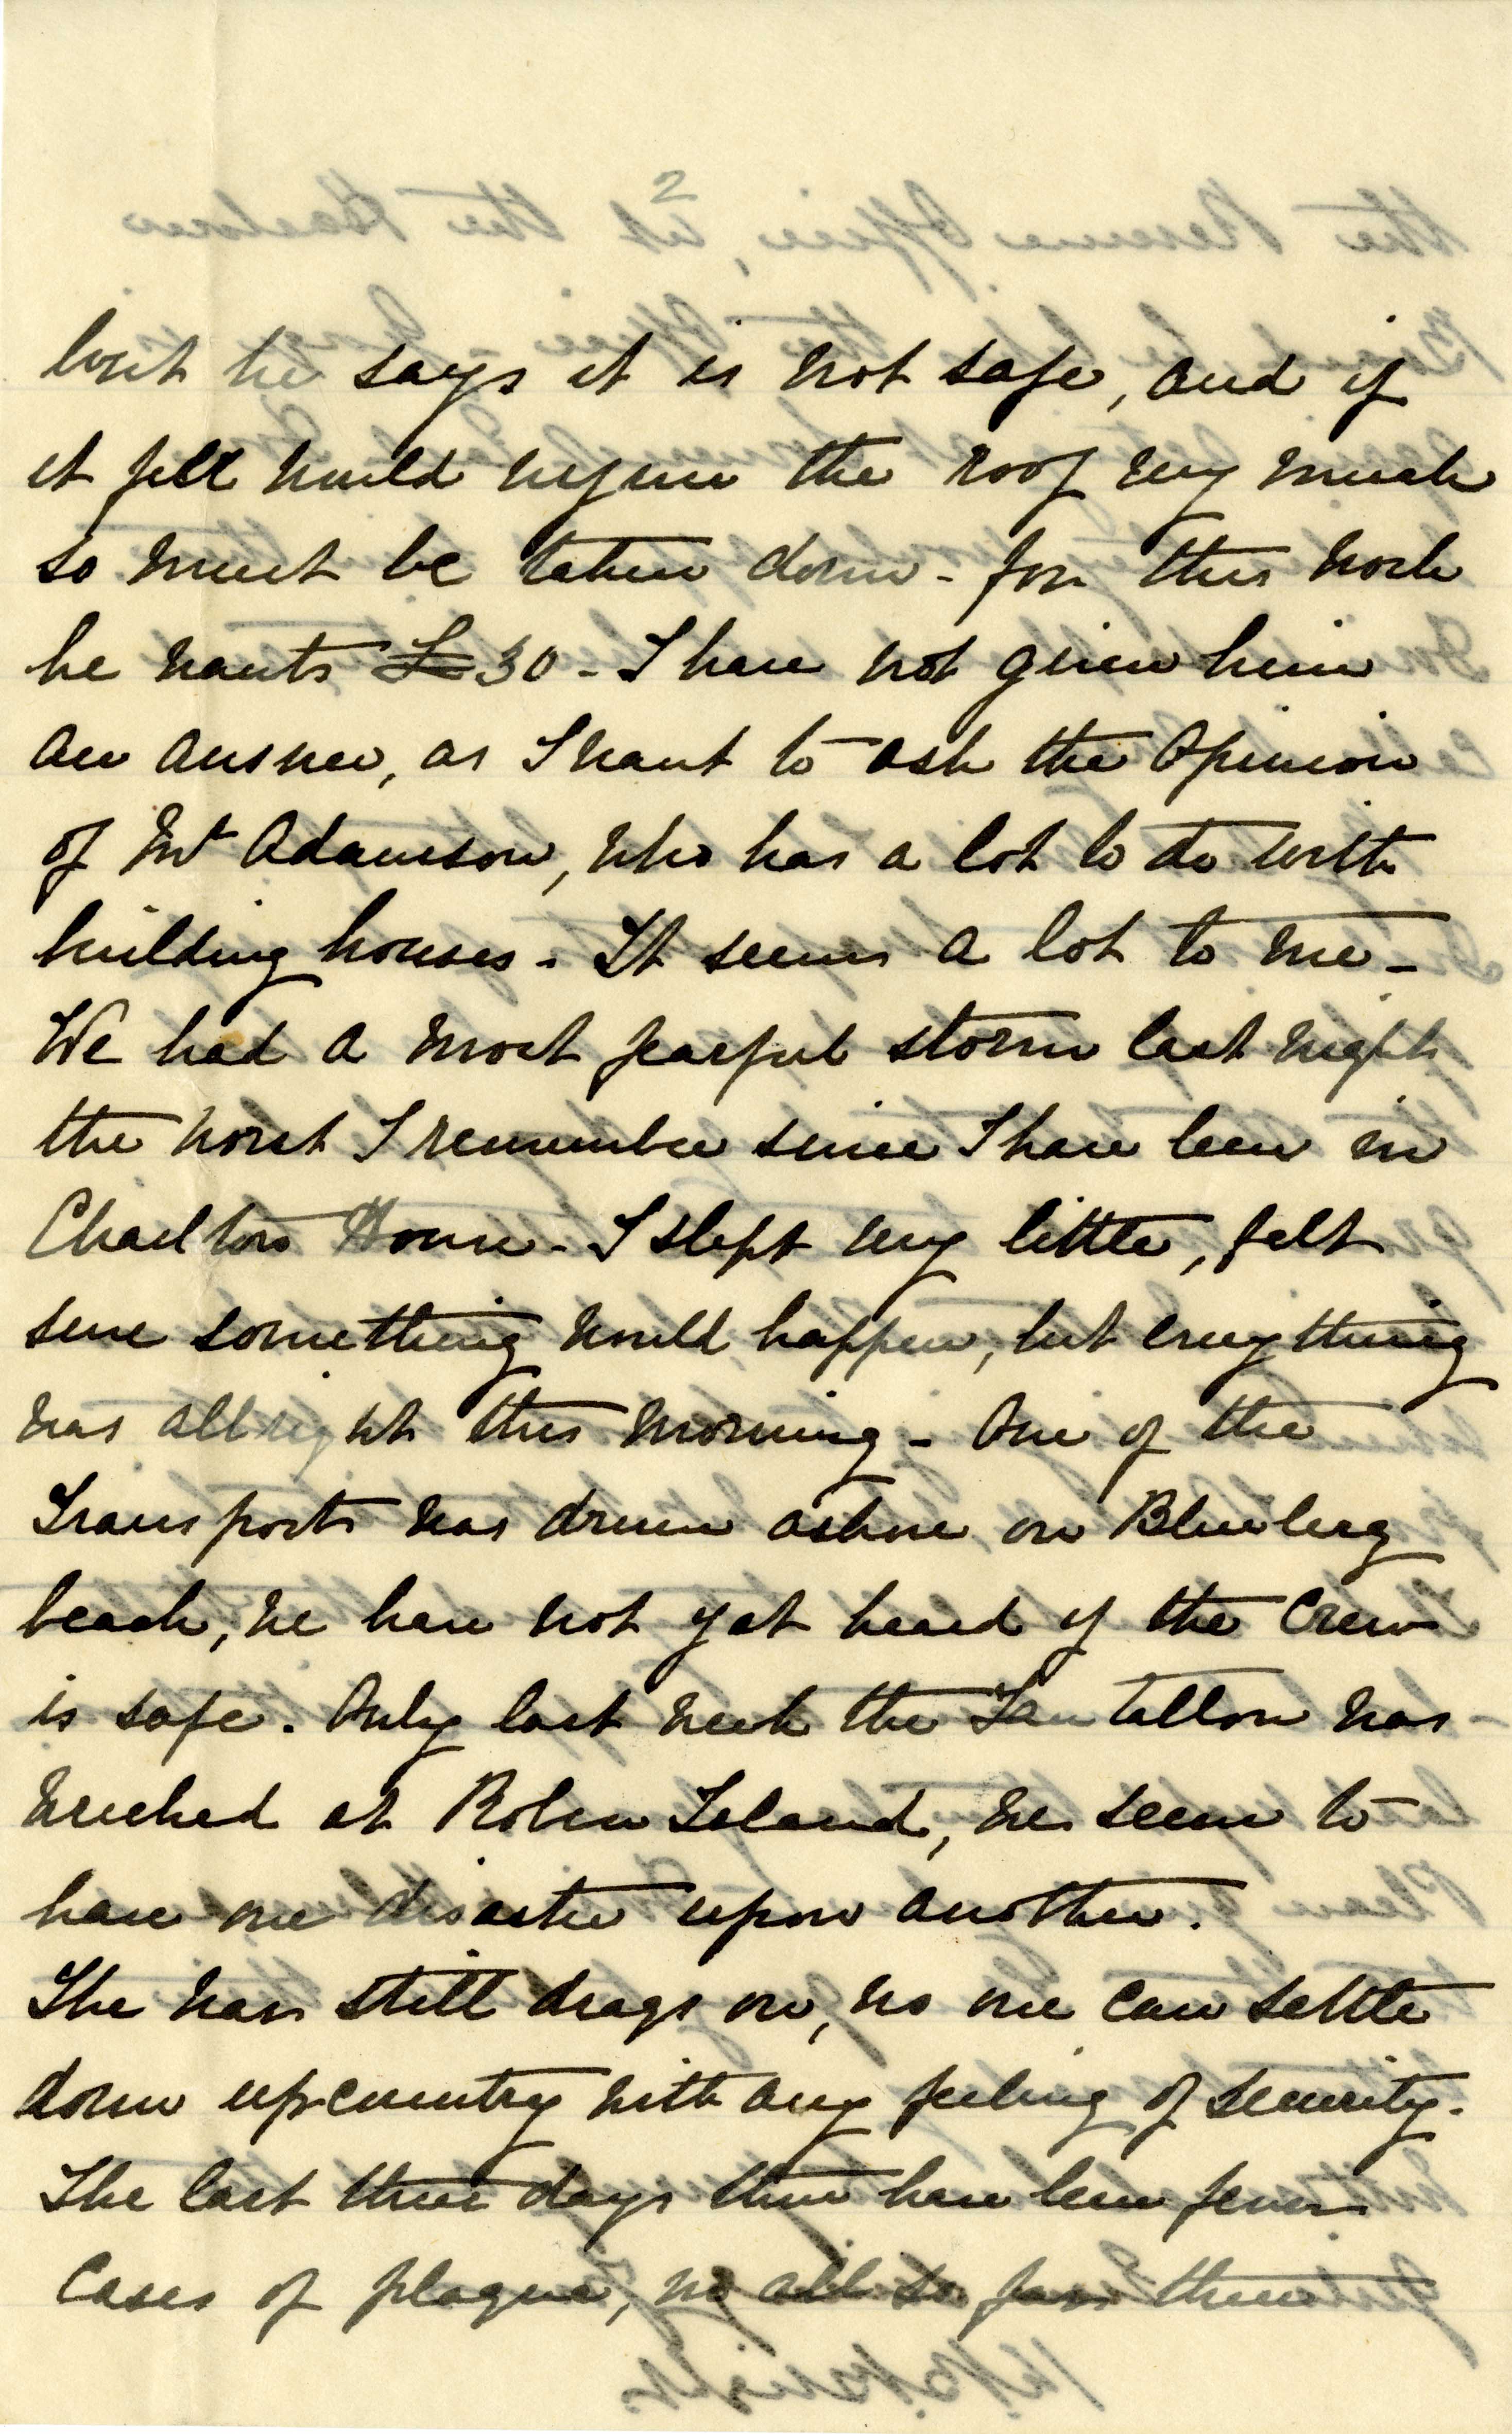 2
but he says it is not safe, and if
it fell would injure the roof very much
so must be taken down - for this work
he wants £30 - I have not given him
an answer, as I want to ask the Opinion
of Mr Adamson, who has a lot to do with
building houses - It seems a lot to me -
We had a most fearful storm last night
the worst I remember since I have been in
Charlton House - I slept very little, felt
sure something would happen, but everything
was all right this morning - One of the
Transports was driven ashore on Blueberg
beach, we have not yet heard if the Crew
is safe. Only last week the Tantallon was
wrecked at Roben Island, we seem to
have one disaster upon another.
The war still drags on, no one can settle
down up-country with any feeling of security.
The last three days there have been fewer
Cases of plague, all so far there